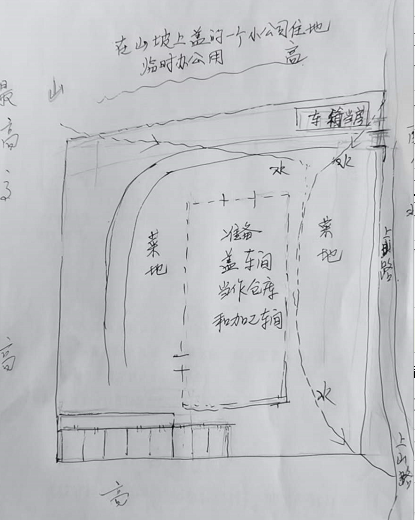 在山坡上盖的一个小公司住地
临时办公用
高
山
最
高
车箱当房
水
水
菜
地
准备
盖车间
当作仓库
和加工车间
菜
地
上山路
水
高
上山路
高